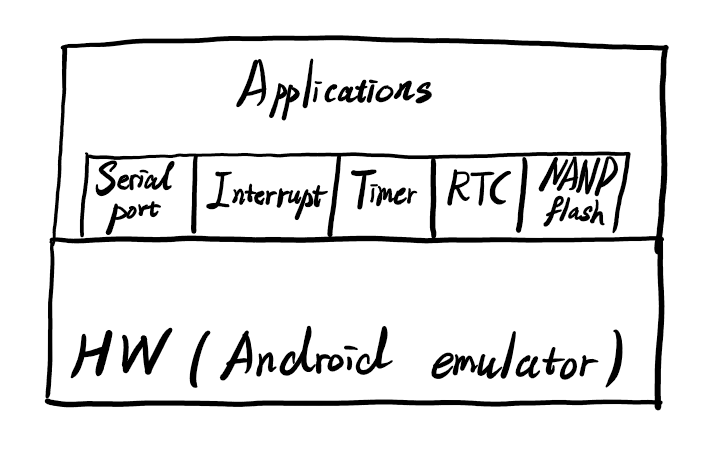 Applications
Serial port
Interrupt
Timer
RTC
NAND flash
HW (Android emulator)